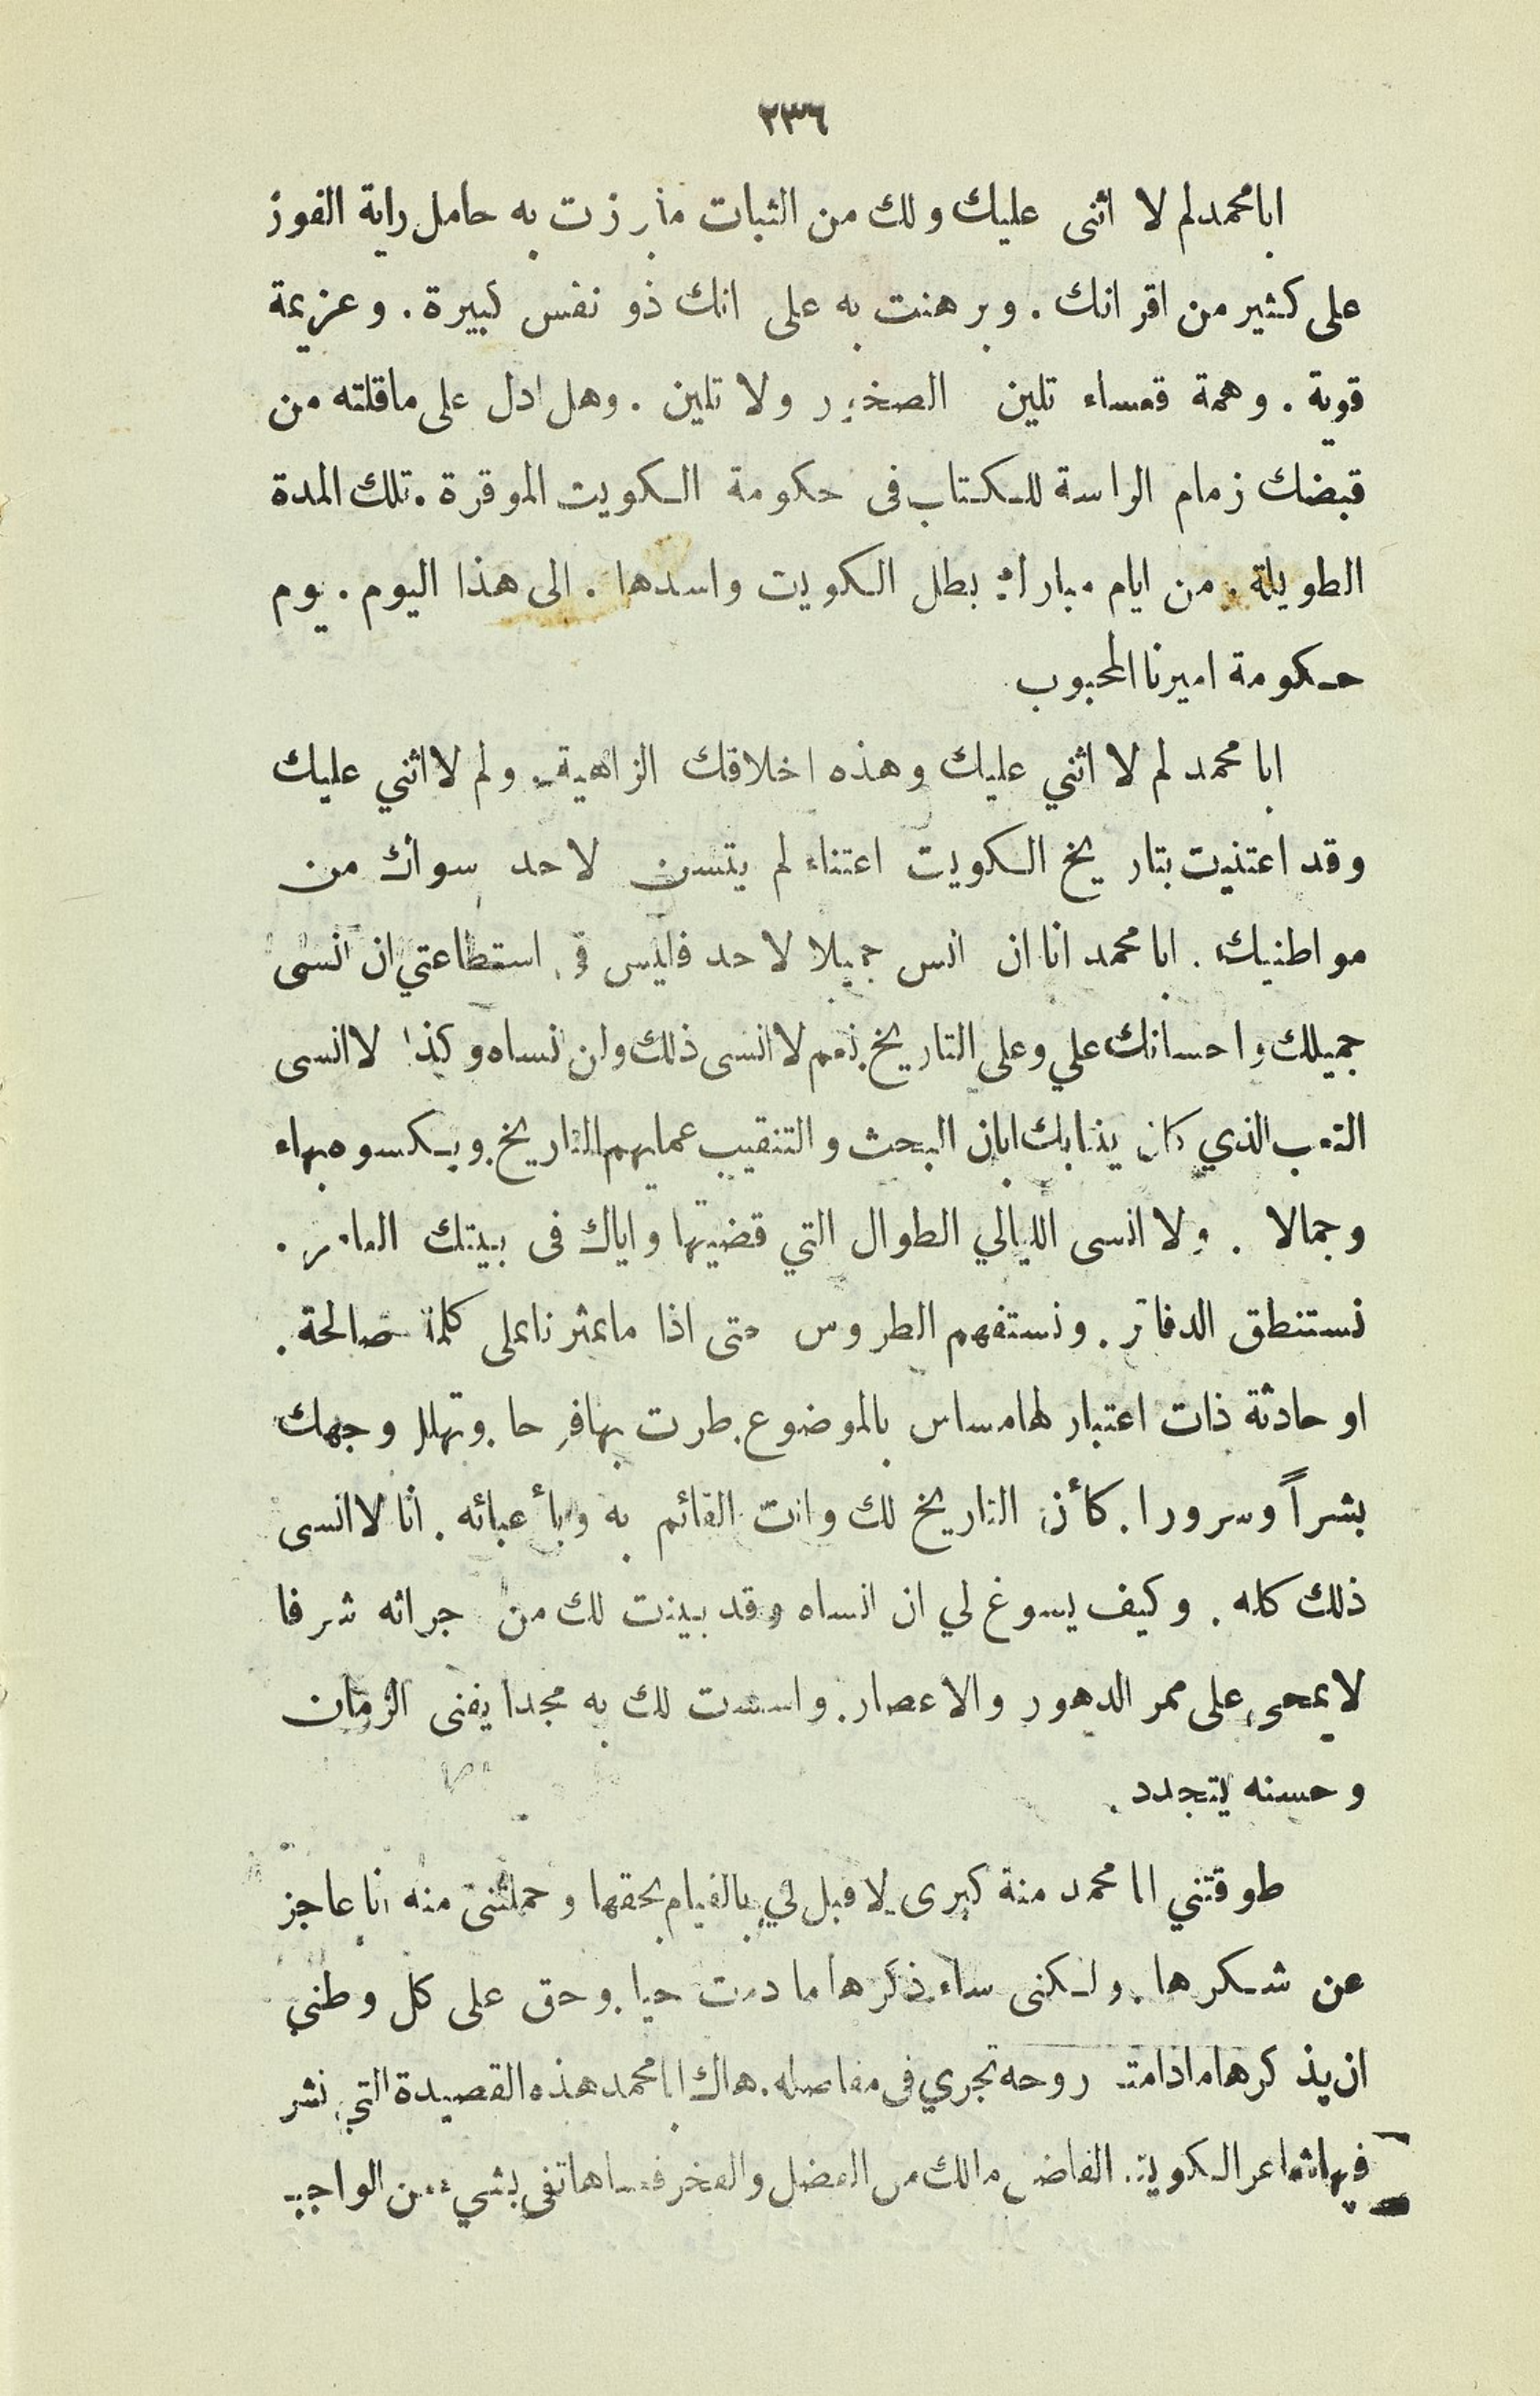 ٢٣٦
ابا محمد لم لا اثنى عليك ولك من الثبات ما برزت به حامل راية الفوز
على كثير من اقرانك . وبرهنت به على انك ذو نفس كبيرة . وعزيمة
قوية . وهمة قعساء تلين الصخور ولا تلين . وهل ادل على ما قلته من
قبضك زمام الراسة للكتاب فى حكومة الكويت الموقرة . تلك المدة
الطويلة . من ايام مبارك بطل الكويت واسدها . الى هذا اليوم . يوم
حكومة اميرنا المحبوب
ابا محمد لم لا اثني عليك وهذه اخلاقك الزاهية . ولم لا اثني عليك
وقد اعتنيت بتاريخ الكويت اعتناء لم يتسن لاحد سواك من
مواطنيك . ابا محمد انا ان انس جميلا لاحد فليس فى استطاعتي ان انسى
جميلك واحسانك علي وعلى التاريخ . نعم لا انسى ذلك ولن انساه وكذا لا انسى
التعب الذي كان ينتابك ابان البحث والتنقيب عما يهم التاريخ . ويكسوه بهاء
وجمالا . ولا انسى الليالي الطوال التي قضيتها واياك فى بيتك العامر .
نستنطق الدفاتر . ونستفهم الطروس حتى اذا ما عثرنا على كلمة صالحة .
او حادثة ذات اعتبار لها مساس بالموضوع . طرت بها فرحا . وتهلل وجهك
بشراً وسرورا . كأن التاريخ لك وانت القائم به وبأعبائه . انا لا انسى
ذلك كله . وكيف يسوغ لي ان انساه وقد بينت لك من جرائه شرفا
لا يمحى على ممر الدهور والاعصار . واسست لك به مجدا يفنى الزمان
وحسنه يتجدد .
طوقتني ابا محمد منة كبرى لا قبل لي بالقيام بحقها وحملتنى منه انا عاجز
عن شكرها . ولكنى ساءذكرها ما دمت حيا . وحق على كل وطني
ان يذكرها ما دامت روحه تجري فى مفاصله . هاك ابا محمد هذه القصيدة التي نشر
فيها شاعر الكويت الفاضل مالك من الفضل والفخر فعساها تفى بشيء من الواجب